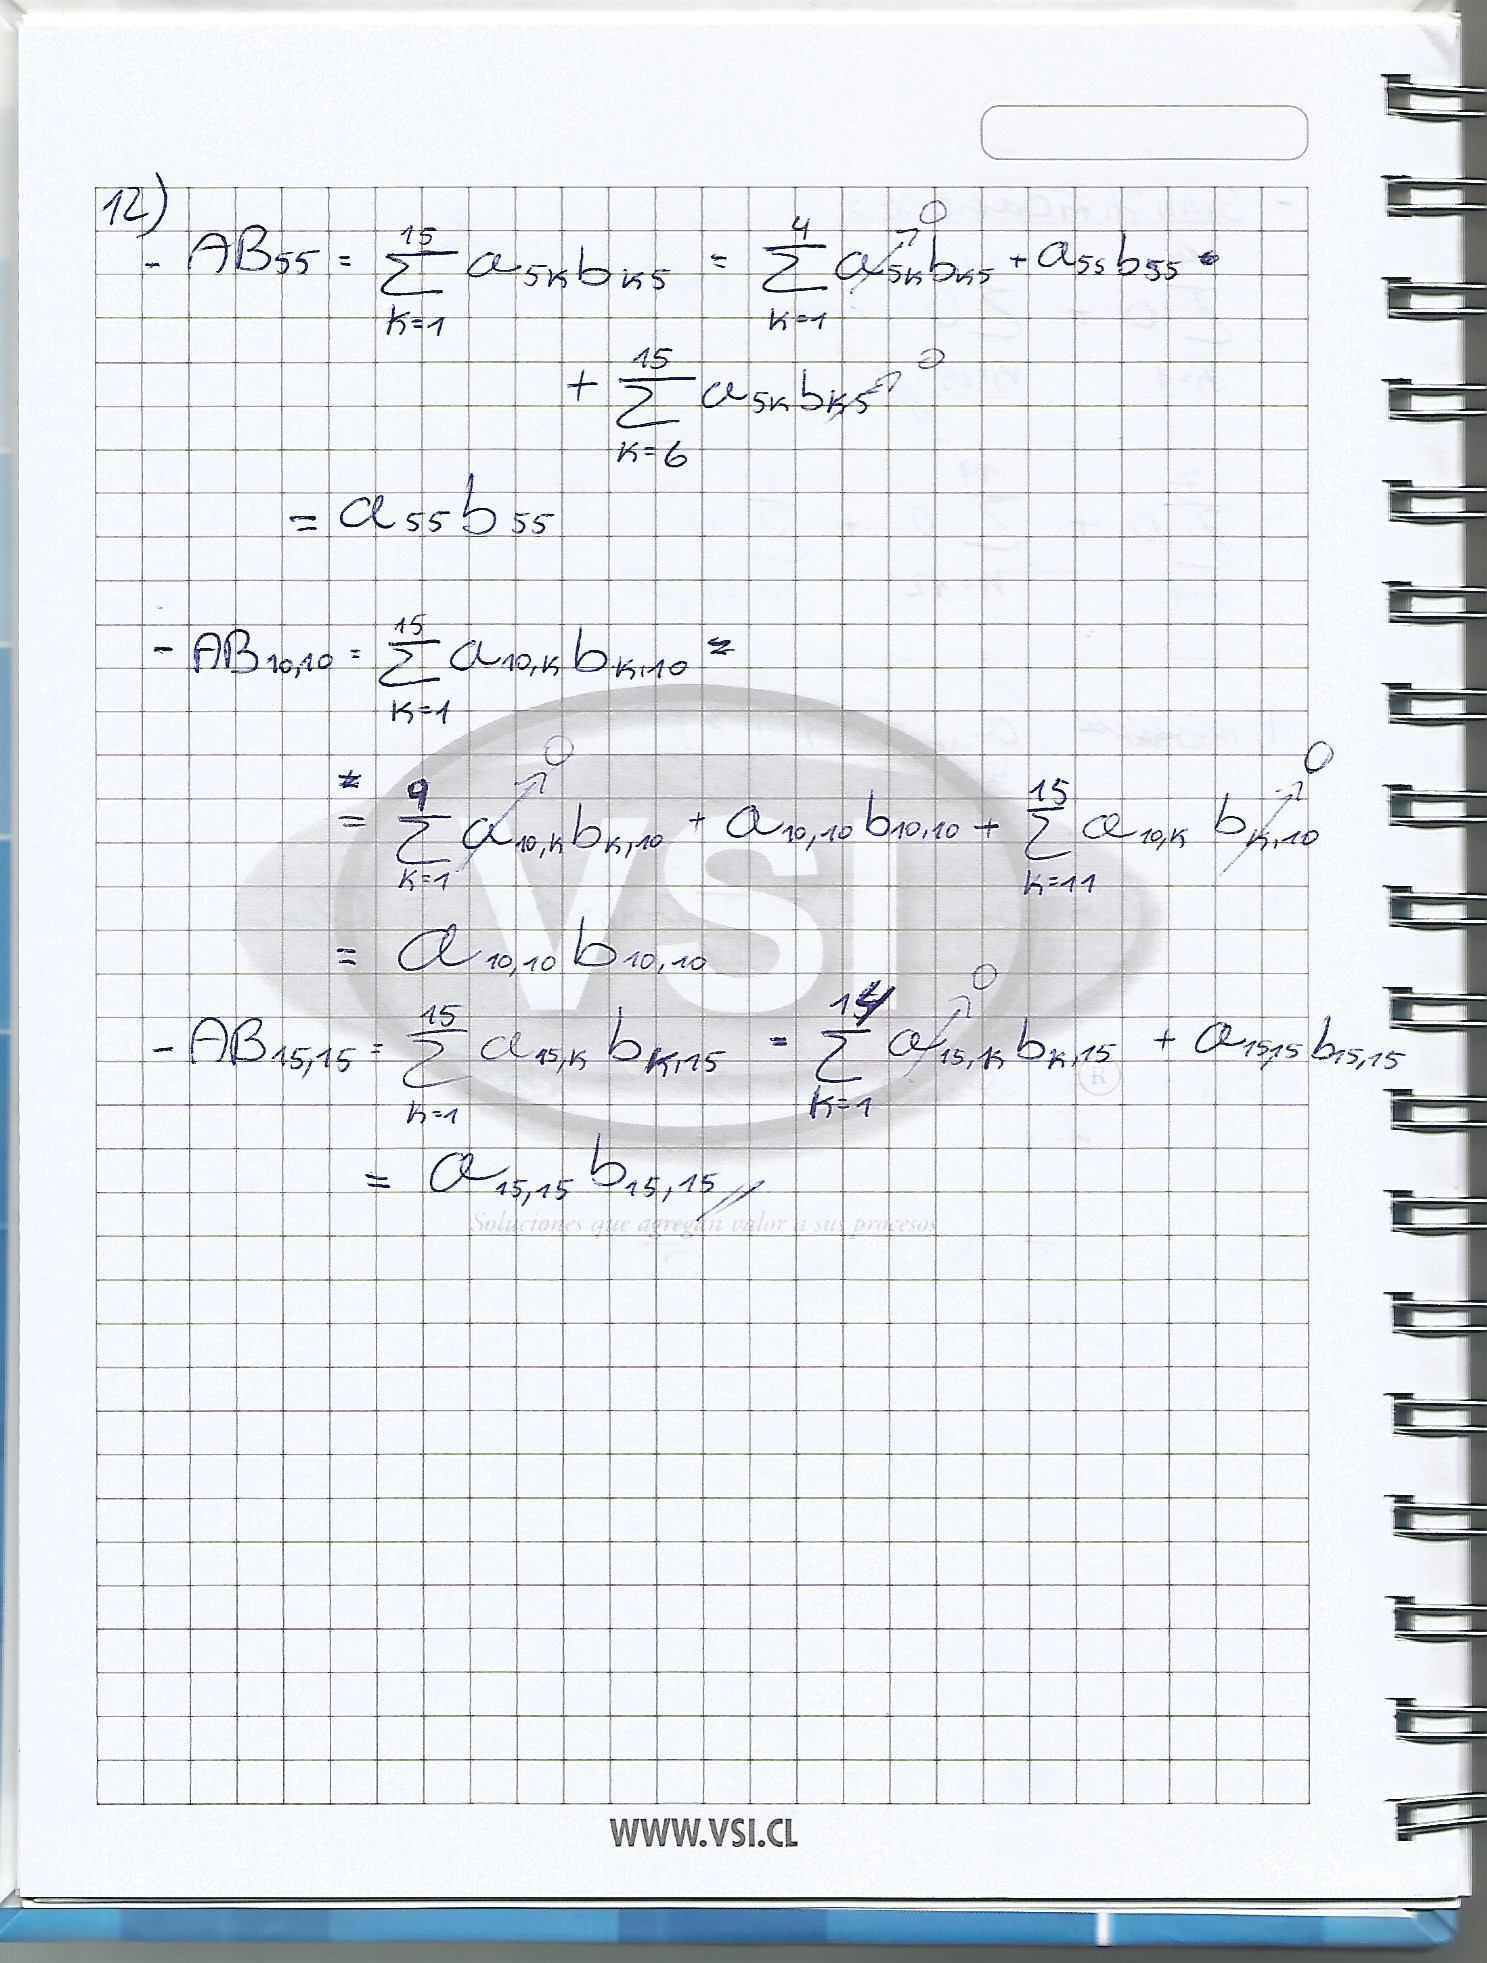 12)
- AB55 = 15 ∑ K=1 a5K bK5 = 4 ∑ K=1 a5K bK5 → 0 + a55 b55
+ 15 ∑ K=6 a5K bK5 → 0
= a55 b55
- AB10,10 = 15 ∑ K=1 a10,K bK,10 =
= 9 ∑ K=1 a10,K bK,10 → 0 + a10,10 b10,10 + 15 ∑ K=11 a10,K bK,10 → 0
= a10,10 b10,10
- AB15,15 = 15 ∑ K=1 a15,K bK,15 = 14 ∑ K=1 a15,K bK,15 → 0 + a15,15 b15,15
= a15,15 b15,15 //
VSI
®
Soluciones que agregan valor a sus procesos
WWW.VSI.CL